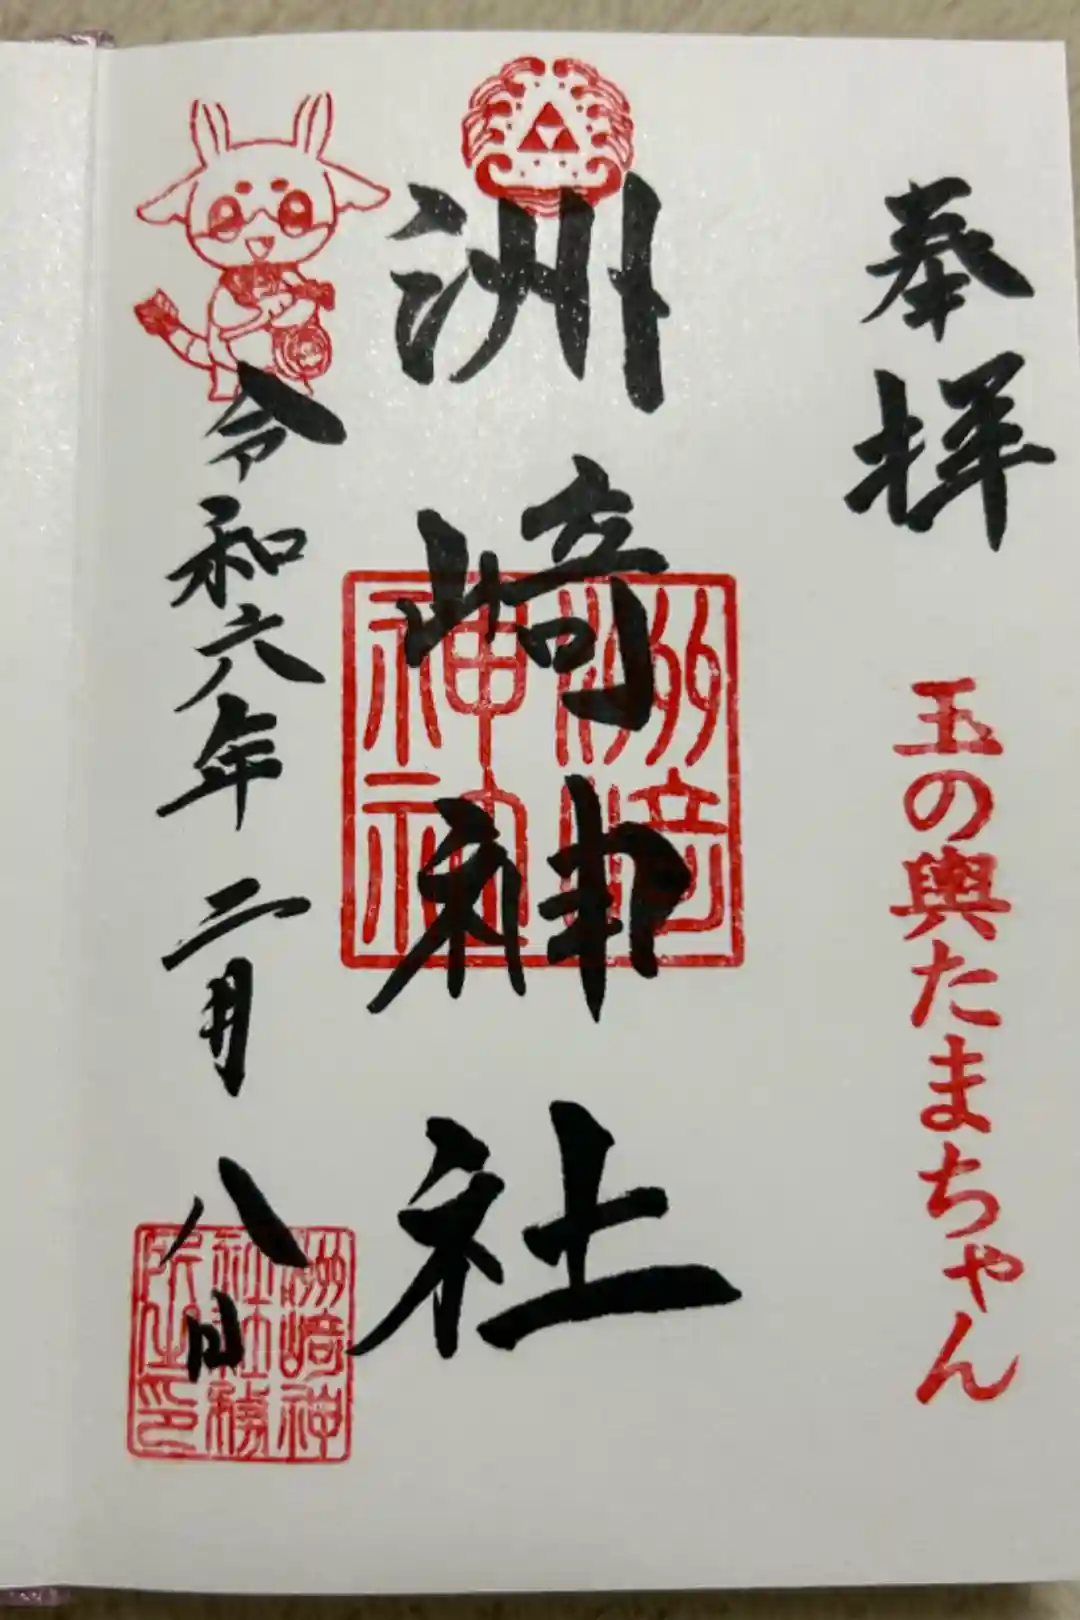 奉拝
玉の輿たまちゃん
洲﨑神社
洲崎
神社
令和六年二月八日
洲崎神
社社務
所之印